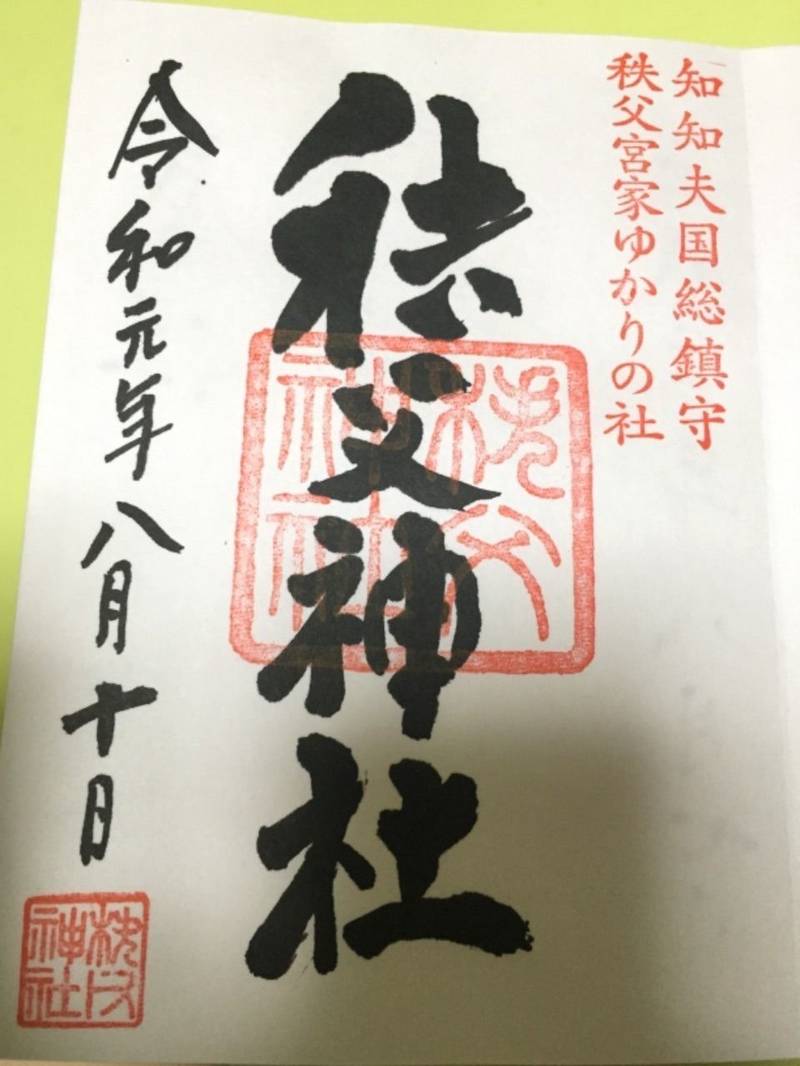 知知夫国総鎮守
秩父宮家ゆかりの社
秩父神社
秩父神社
令和元年八月十日
秩父神社